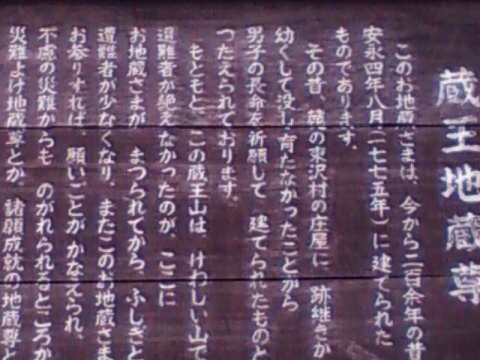 蔵王地蔵尊
このお地蔵さまは、今から二百余年の昔
安永四年八月(一七七五年)に建てられた
ものであります。
その昔、 の東沢村の庄屋に、跡継ぎが
幼くして没し育たなかったことがら
男子の長命を祈願して 建てられたものと
つたえられております。
もともと、この蔵王山は けわしい山で
遭難者が絶えなかったのが、ここに
お地蔵さまが まつられてから、ふしぎと
遭難者が少なくなり、またこのお地蔵さま
お参りすれば、願いごとが かなえられ、
不慮の災難からも のがれられるところか
災難よけ地蔵尊とか、諸願成就の地蔵尊と